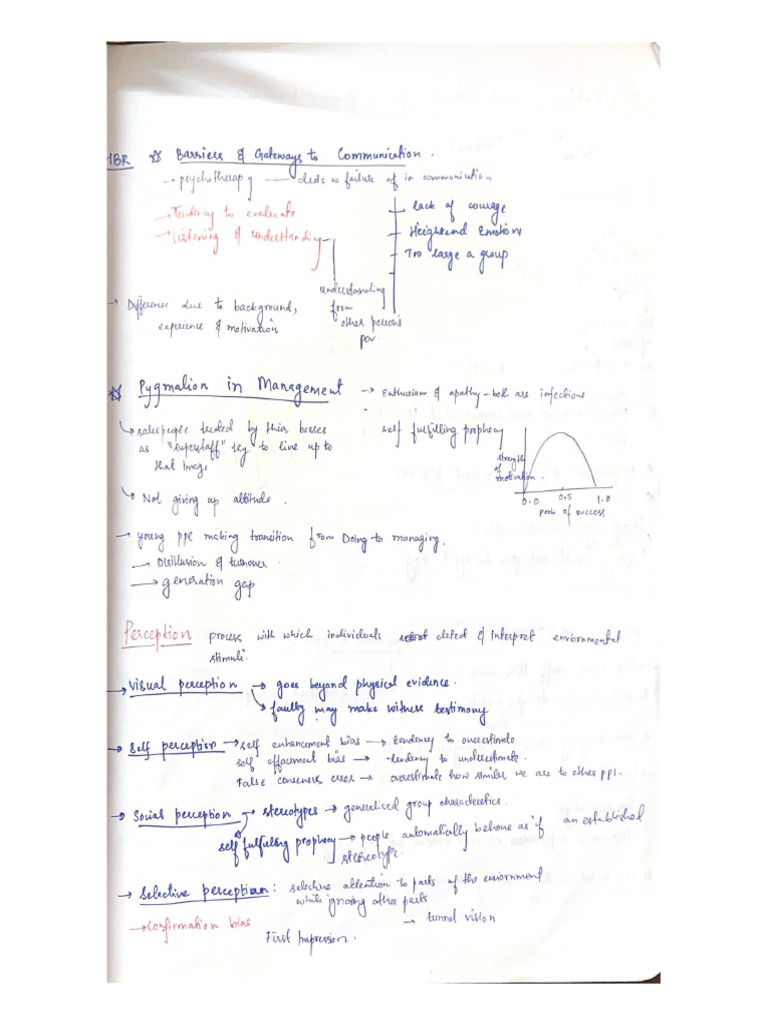 HBR ☆ Barriers & Gateways to Communication.
→ psychotherapy — deals w failure of in communication
→ Tendency to evaluate
→ Listening & understanding
lack of courage
Heightend Emotions
Too large a group
understanding
from
other persons
pov.
→ Difference due to background,
experience & motivation
☆ Pygmalion in Management → enthusiasm & apathy - both are infectious
→ salespeople treated by their bosses
as "superstaff" try to live up to
that image
self fulfilling prophecy
strength
of
motivation.
0.0 0.5 1.0
prob of success
→ Not giving up attitude.
→ young ppl making transition from Doing to managing.
→ Disillusion & turnover
→ generation gap
Perception process with which individuals detect & interpret environmental
stimuli.
→ Visual perception → goes beyond physical evidence.
→ faulty may make witness testimony
→ Self perception → self enhancement bias → tendency to overestimate
self effacement bias → tendency to underestimate.
False consensus error → overestimate how similar we are to other ppl.
→ Social perception → stereotypes → generalised group characteristics.
self fulfulling prophecy → people automatically behave as if an established
stereotype.
→ Selective perception : selective attention to parts of the enviornment
while ignoring other parts
→ tunnel vision
→ Confirmation bias
First Impression.